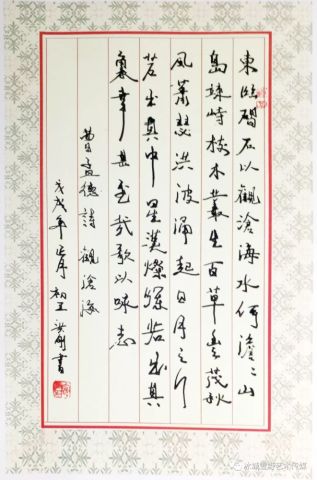 東臨碣石以觀滄海水何澹々山
島竦峙樹木叢生百草豐茂秋
風蕭瑟洪波涌起日月之行
若出其中星漢燦爛若出其
裏幸甚至哉歌以咏志
曹孟德詩 觀滄海
戊戌年正月初五 書